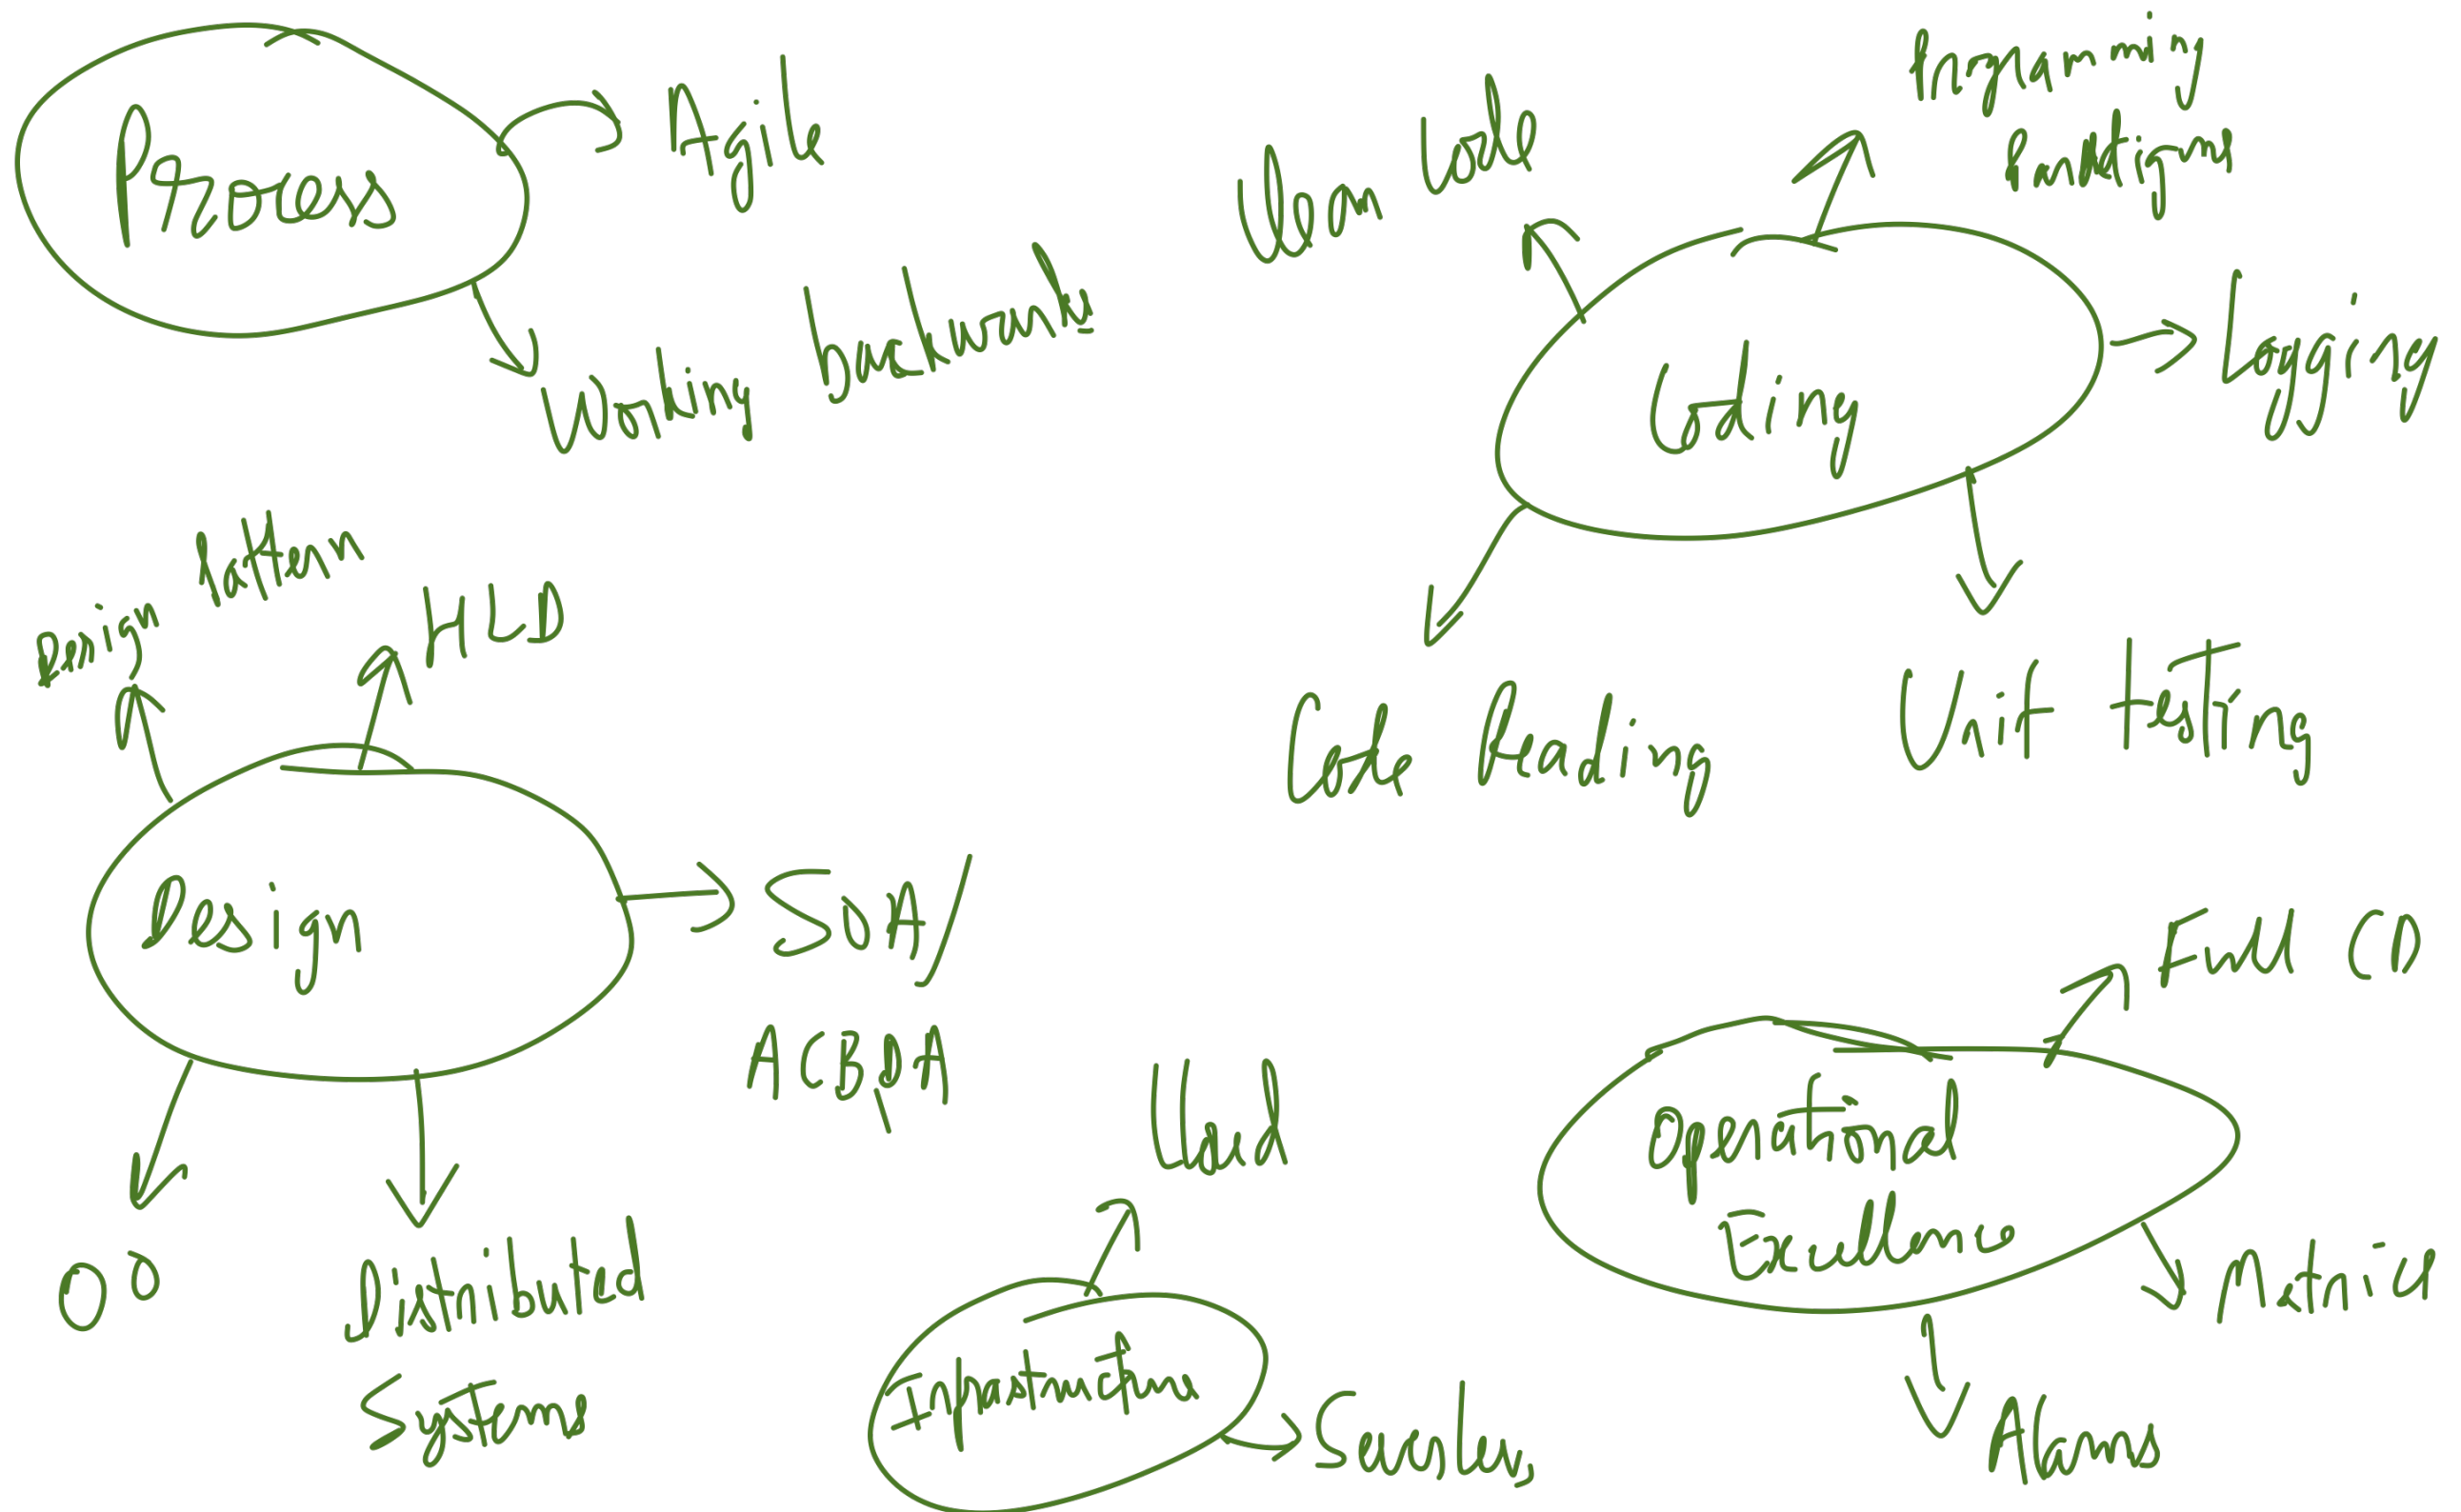 Process
Agile
Working backwards
Clean Code
Programming
Paradigms
Coding
Logging
Code Reading
Unit testing
Design Pattern
HLD
Design
SOA/
OO
Distributed
Systems
Cloud
Infrastructure
Serverless
Full CD
Operational
Excellence
Metrics
Alarms